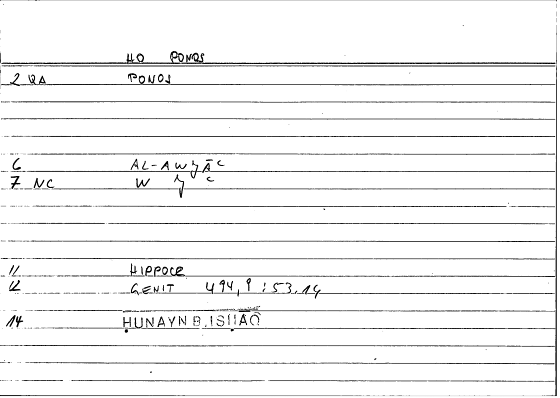 HO PONOS
2 QA PONOS
6 AL-AWǦĀʿ
7 NC W Ǧ ʿ
11 HIPPOCR
12 GENIT 494,9 : 53.14
14 ḤUNAYN B. ISḤĀQ